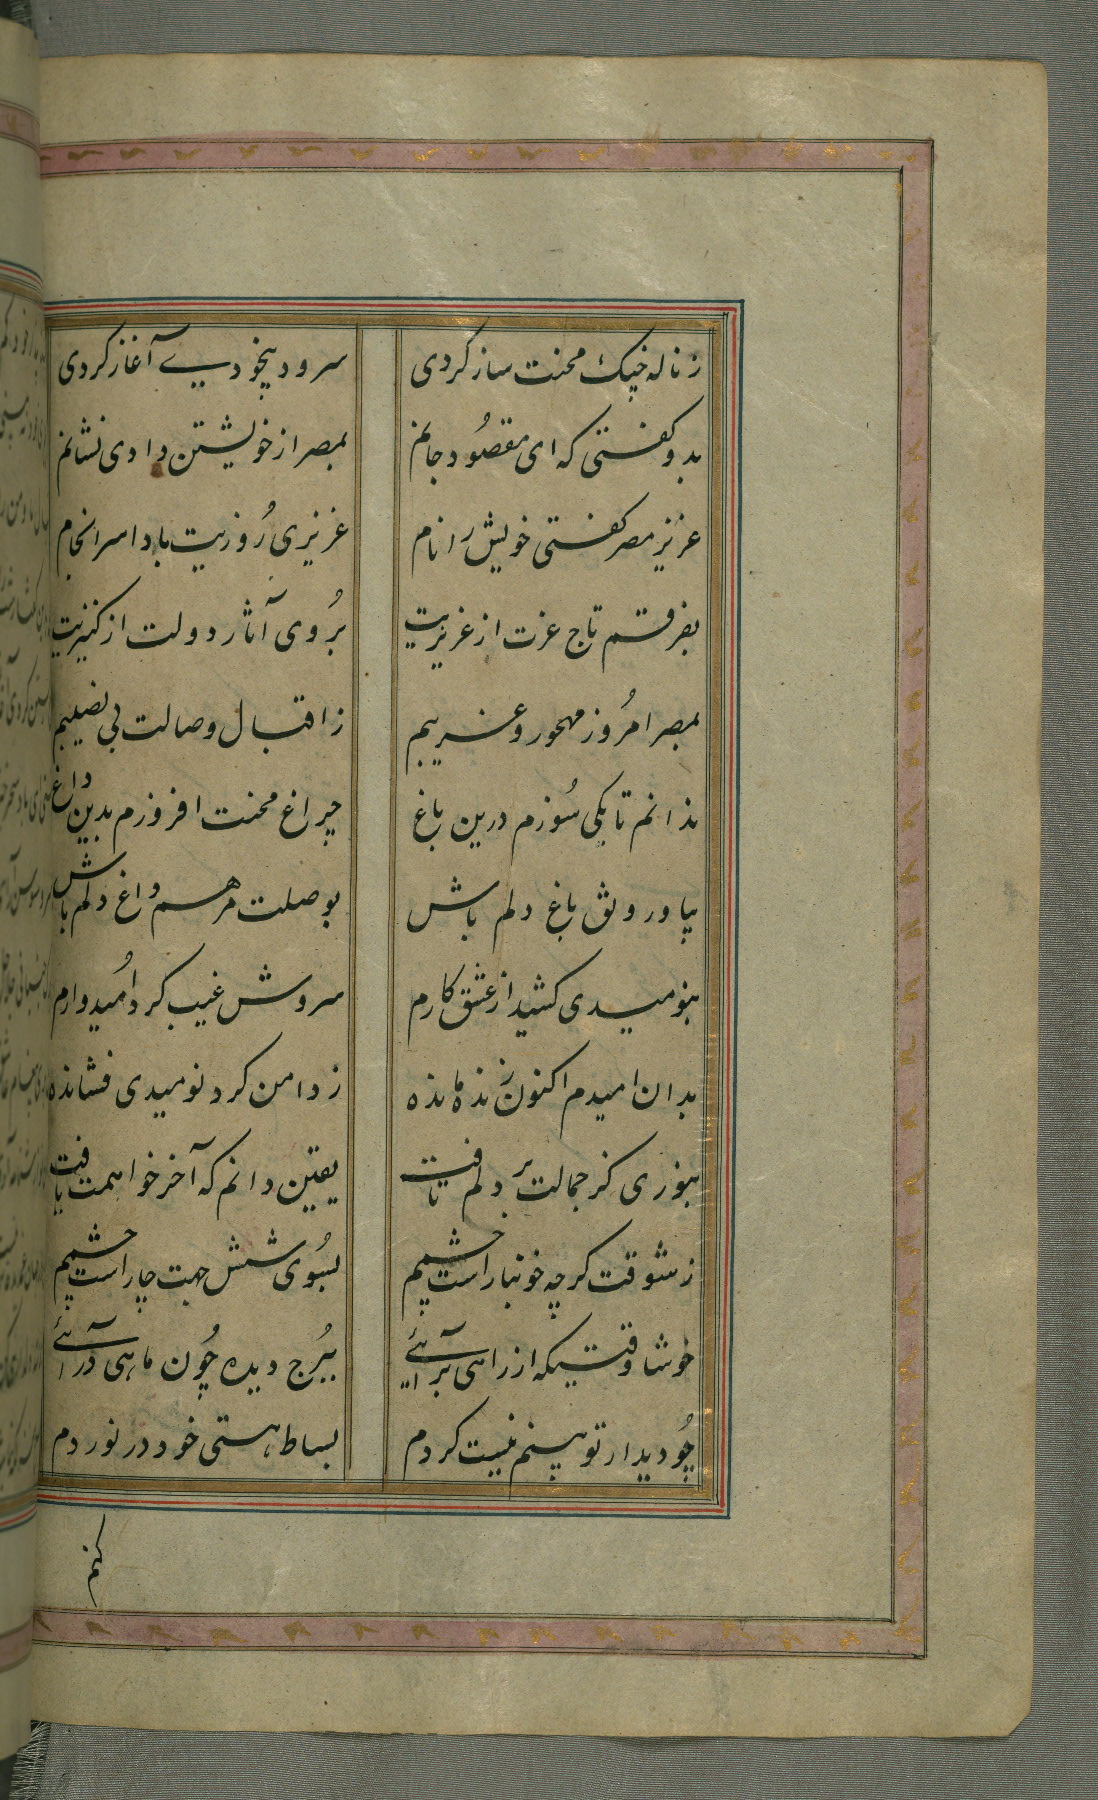 ز ناله چنک محنت ساز کردی سرود بیخودیے آغاز کردی
بدو کفتی که ای مقصُود جانم بمصر از خویشتن دادی نشانم
عزیز مصر کفتی خویش را نام عزیزی رُوزیت بادا سرانجام
بفرقم تاج عزت از عزیزیت برُوی آثار دولت از کنیزیت
بمصر امرُوز مهجور و غریبم ز اقبال وصالت بی نصیبم
ندانم تا بکی سُوزم درین باغ چراغ محنت افروزم بدین داغ
بیا و رونق باغ دلم باش بوصلت مرهم داغ دلم باش
بنومیدی کشید از عشق کارم سروش غیب کرد اُمیدوارم
بدان امیدم اکنون زنده مانده ز دامن کرد نومیدی فشانده
بنوری کز جمالت بر دلم تافت یقین دانم که آخر خواهمت یافت
ز شوقت کرچه خونبار است چشم بسُوی شش جهت چار است چشم
خوشا وقتیکه از راهی برآئے ببُرج دیده چُون ماهی درآئے
چُو دیدار تو بینم نیست کردم بساط هستی خود در نوردم
کنم